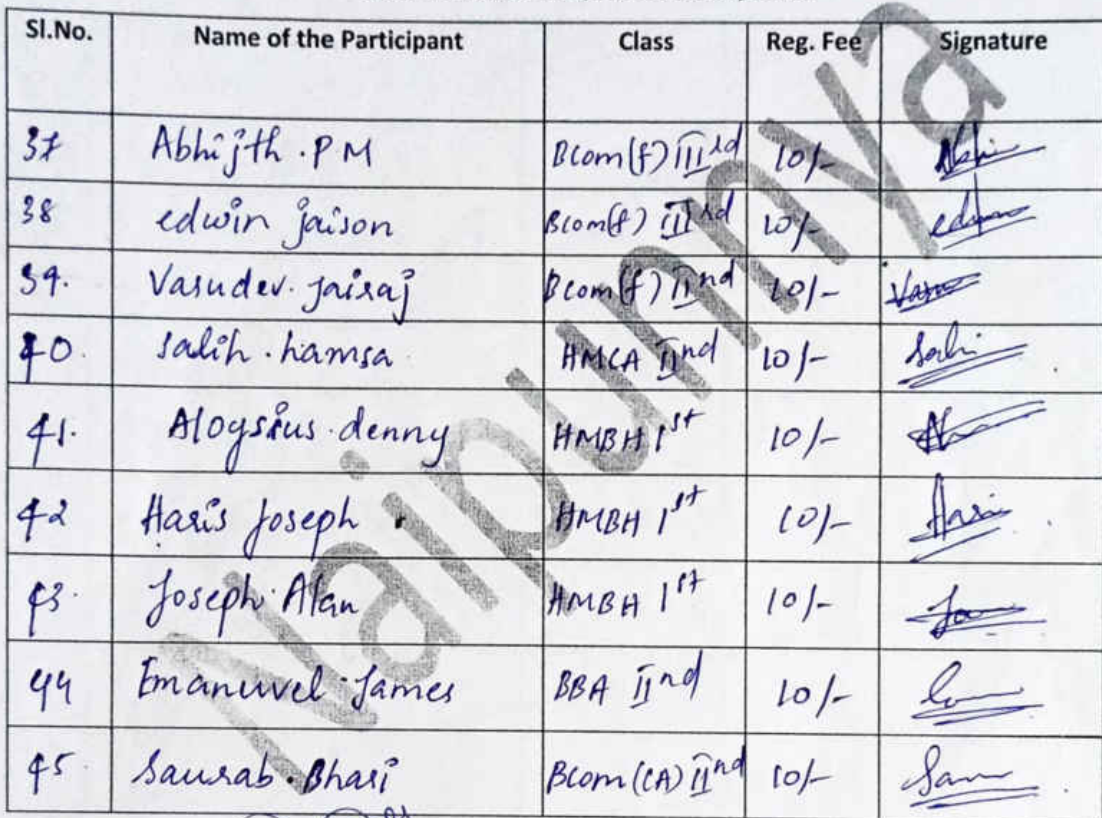 Sl.No. Name of the Participant Class Reg. Fee Signature
37 Abhijth .P M Bcom(f) IIIrd 10/- Abhi
38 edwin jaison Bcom(f) IIIrd 10/- edwin
39. Vasudev. jairaj Bcom(f) IInd 10/-
40. salih .hamsa HMCA IInd 10/- Sali
41. Aloysius .denny HMBH 1st 10/-
42 Haris Joseph . HMBH 1st 10/- Haris
43. Joseph Alan HMBH 1st 10/-
44 Emanuvel James BBA IInd 10/-
45. Saurab .Bhasi Bcom(CA) IInd 10/-
Naipunnya